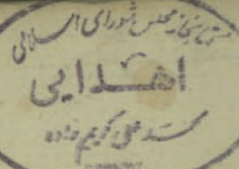 کتابخانه مجلس شورای اسلامی
اهدایی
سید علی کریم زاده